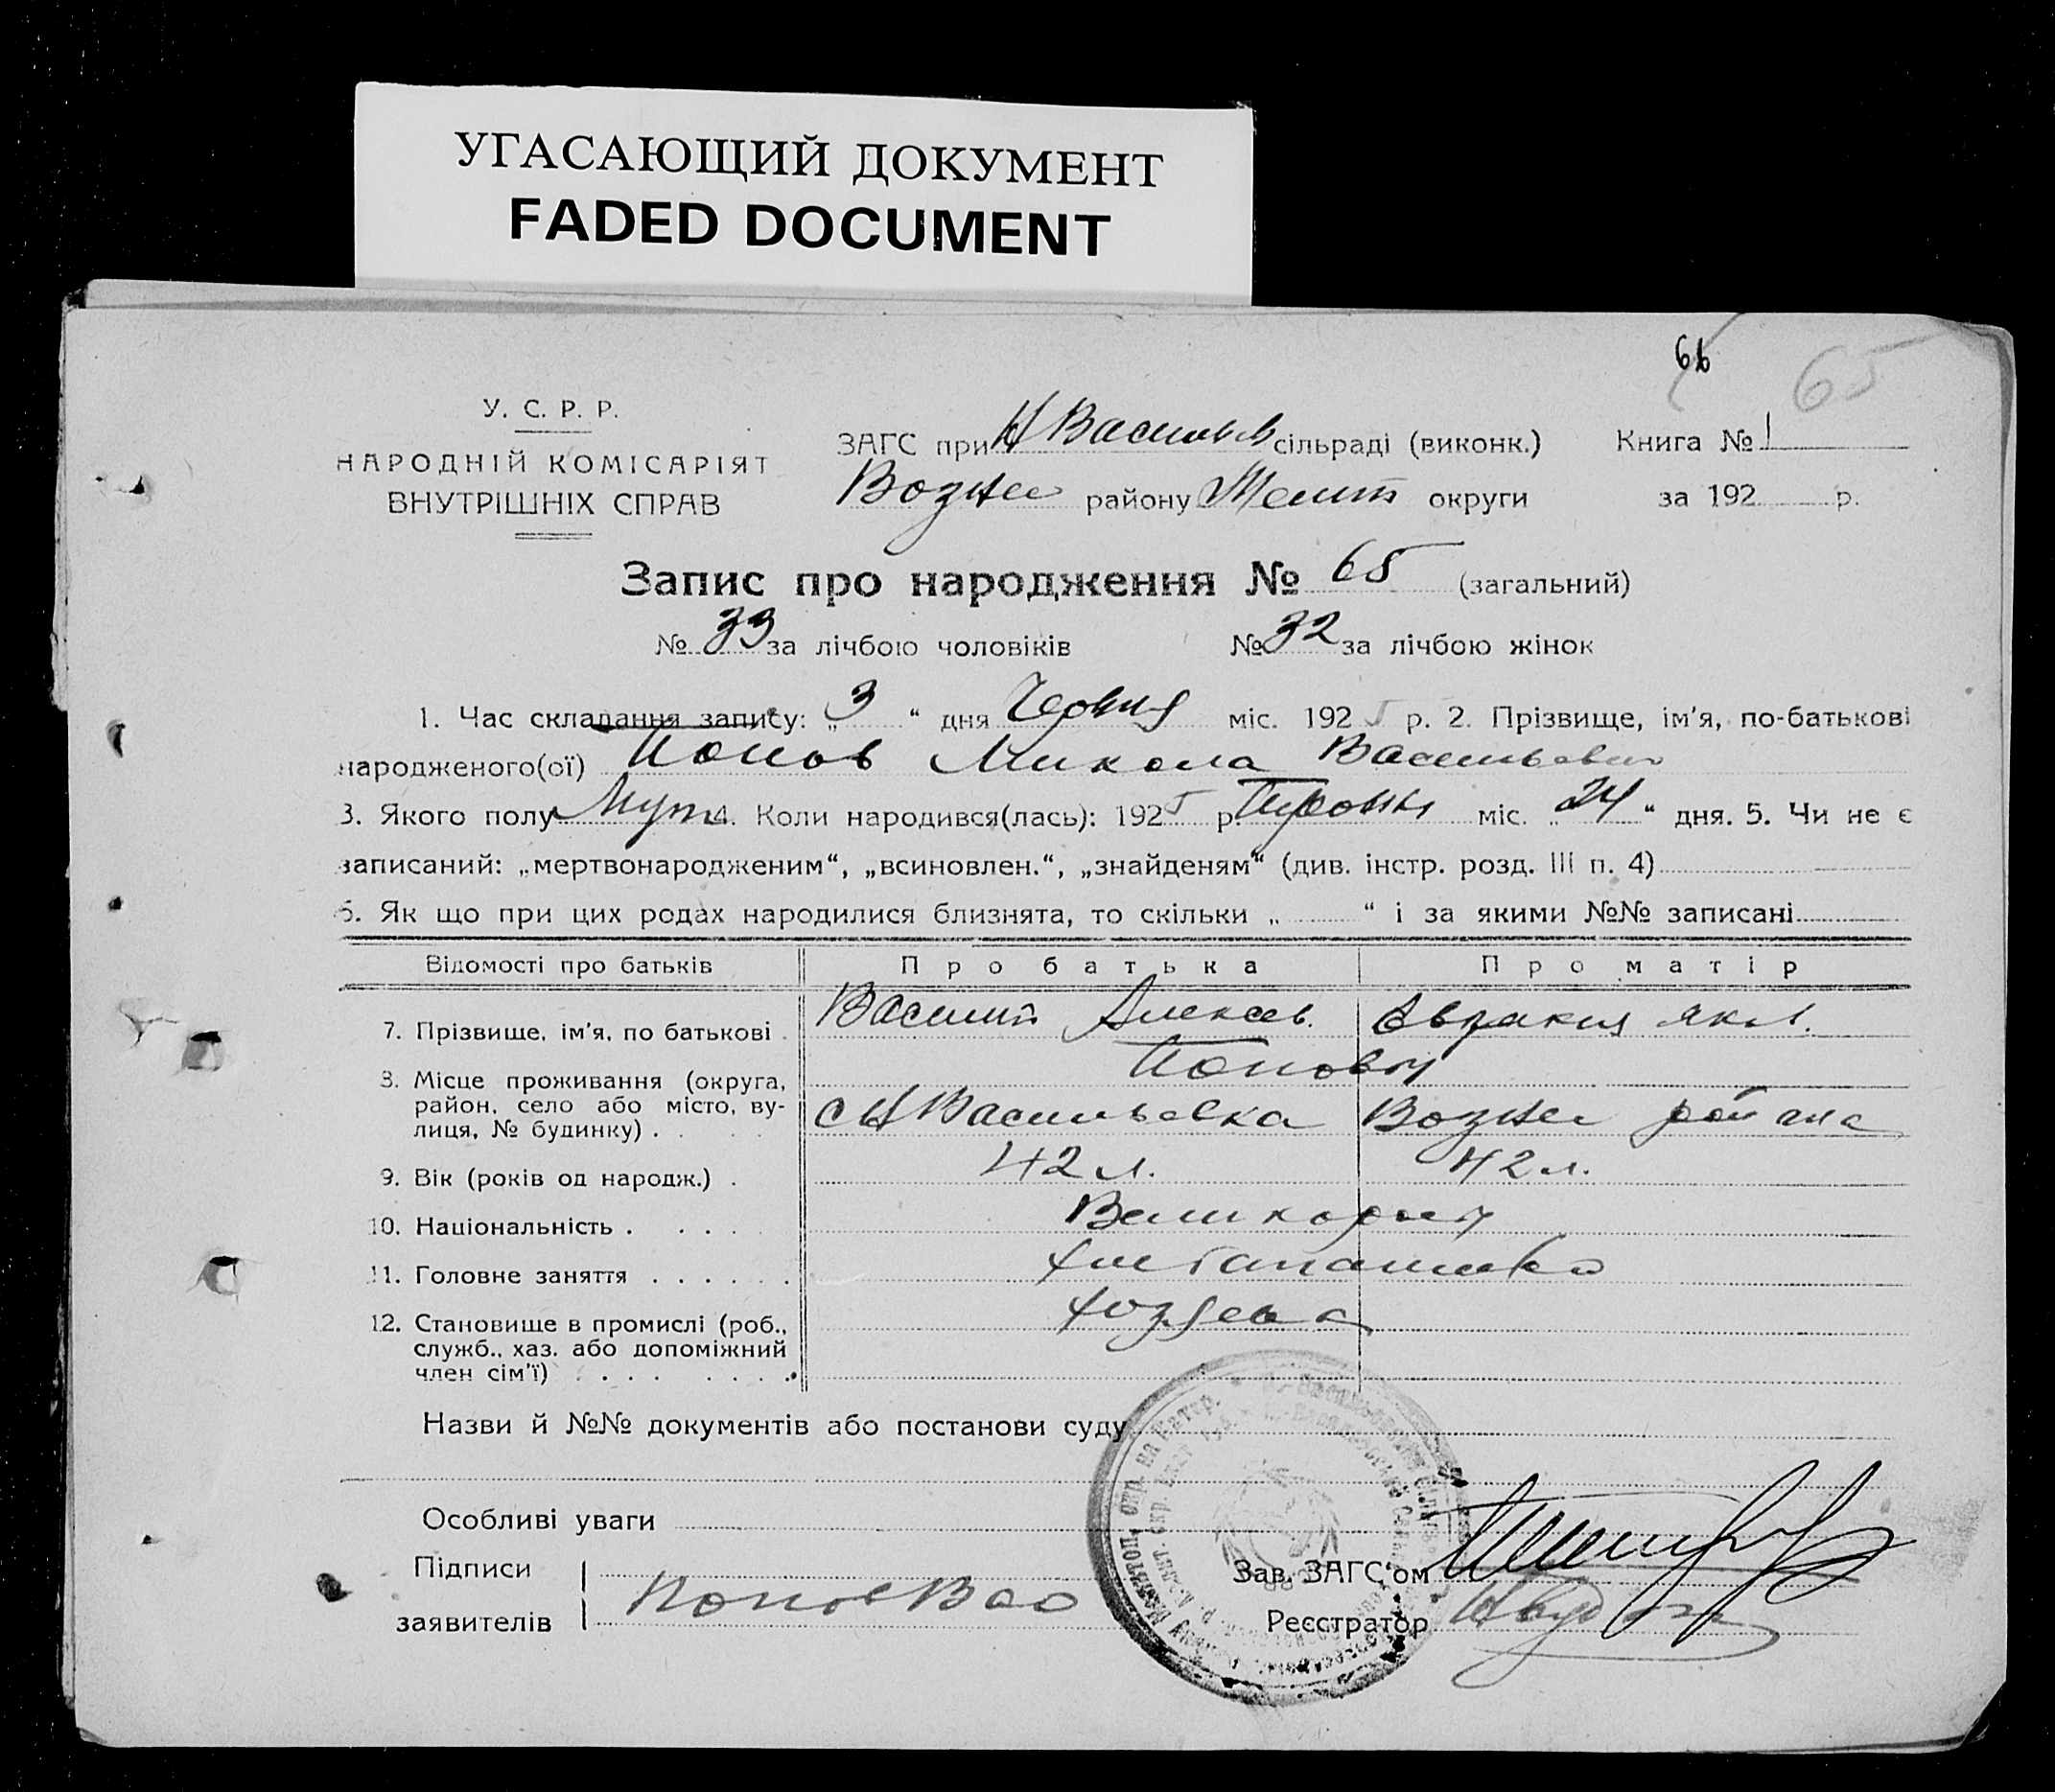 УГАСАЮЩИЙ ДОКУМЕНТ
FADED DOCUMENT
65
У. С. Р. Р.
НАРОДНІЙ КОМІСАРІЯТ
ВНУТРІШНІХ СПРАВ
ЗАГС при Н Васильев сільраді (виконк.) Книга № 1
Возне району Меліт округи за 192 р.
Запис про народження № 65 (загальний)
№ 33 за лічбою чоловіків № 32 за лічбою жінок
1. Час складання запису: „ 3 “ дня Червня міс. 192 5 р. 2. Прізвище, ім'я, по-батькові
народженого(ої) Попов Микола Васильевич
3. Якого полу Муж 4. Коли народився(лась): 192 5 р. міс. „ 24 “ дня. 5. Чи не є
записаний: „мертвонародженим“, „всиновлен.“, „знайденям“ (див. інстр. розд. III п. 4)
6. Як що при цих родах народилися близнята, то скільки „ “ і за якими №№ записані
Відомості про батьків Про батька Про матір
7. Прізвище, ім'я, по батькові . Василий Алексеев. Яковл.
Поповы
8. Місце проживання (округа,
район, село або місто, ву-
лиця, № будинку) . . с Н Васильевка Возне района
9. Вік (років од народж.) . 42 л. 42 л.
10. Національність . . . . . Великоросы
11. Головне заняття . . . . . . Хлебопашество
12. Становище в промислі (роб.,
служб., хаз. або допоміжний
член сім'ї) . . . . . . . Хозяева
Назви й №№ документів або постанови суду
Особливі уваги
Підписи
заявителів Попов Вас
Зав. ЗАГС'ом
Реєстратор